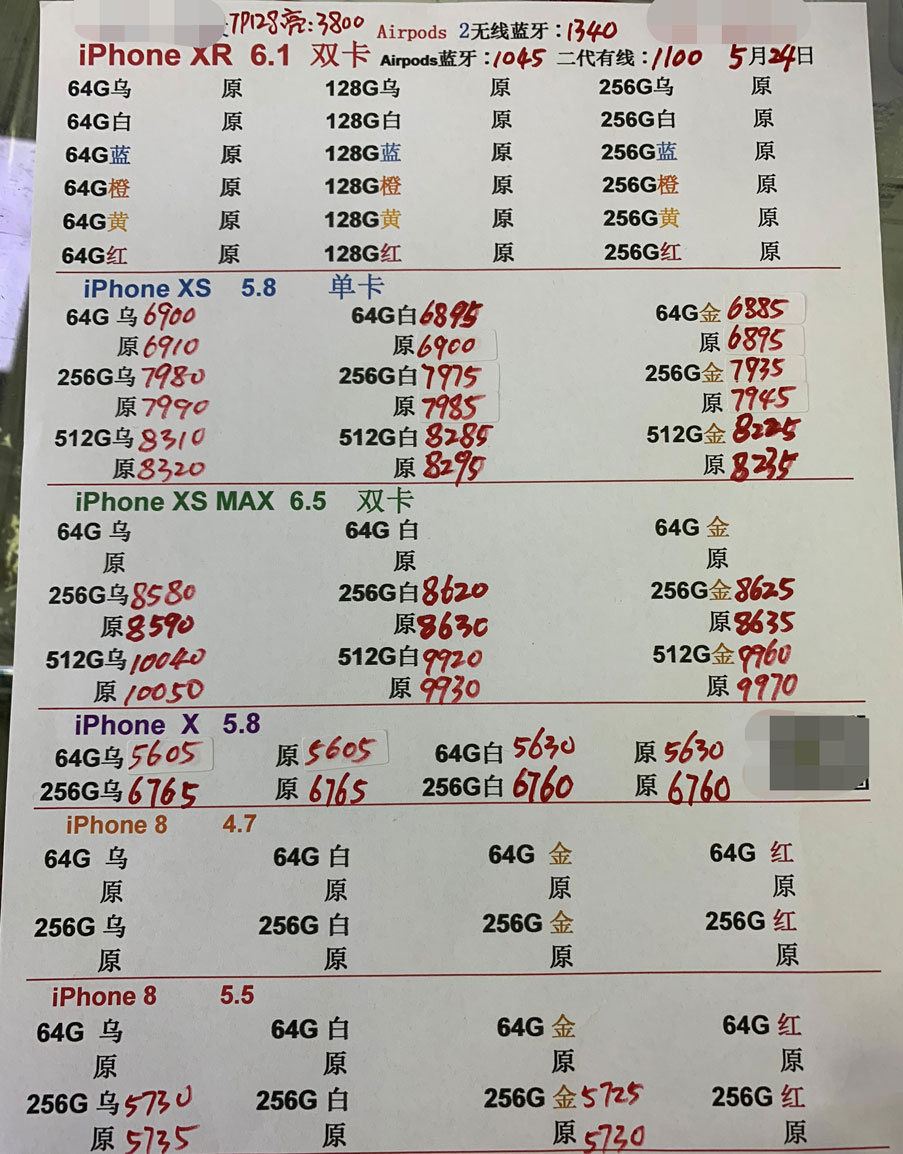 7P128亮:3800 Airpods 2无线蓝牙:1340
iPhone XR 6.1 双卡 Airpods蓝牙:1045 二代有线:1100 5月24日
64G乌 原 128G乌 原 256G乌 原
64G白 原 128G白 原 256G白 原
64G蓝 原 128G蓝 原 256G蓝 原
64G橙 原 128G橙 原 256G橙 原
64G黄 原 128G黄 原 256G黄 原
64G红 原 128G红 原 256G红 原
iPhone XS 5.8 单卡
64G 乌6900 64G白6895 64G金6885
原6910 原6900 原6895
256G乌7980 256G白7975 256G金7935
原7990 原7985 原7945
512G乌8310 512G白8285 512G金8225
原8320 原8295 原8235
iPhone XS MAX 6.5 双卡
64G 乌 64G 白 64G 金
原 原 原
256G乌8580 256G白8620 256G金8625
原8590 原8630 原8635
512G乌10040 512G白9920 512G金9960
原10050 原9930 原9970
iPhone X 5.8
64G乌5605 原5605 64G白5630 原5630
256G乌6765 原6765 256G白6760 原6760
iPhone 8 4.7
64G 乌 64G 白 64G 金 64G 红
原 原 原 原
256G 乌 256G 白 256G 金 256G 红
原 原 原 原
iPhone 8 5.5
64G 乌 64G 白 64G 金 64G 红
原 原 原 原
256G 乌5730 256G 白 256G 金5725 256G 红
原5735 原 原5730 原